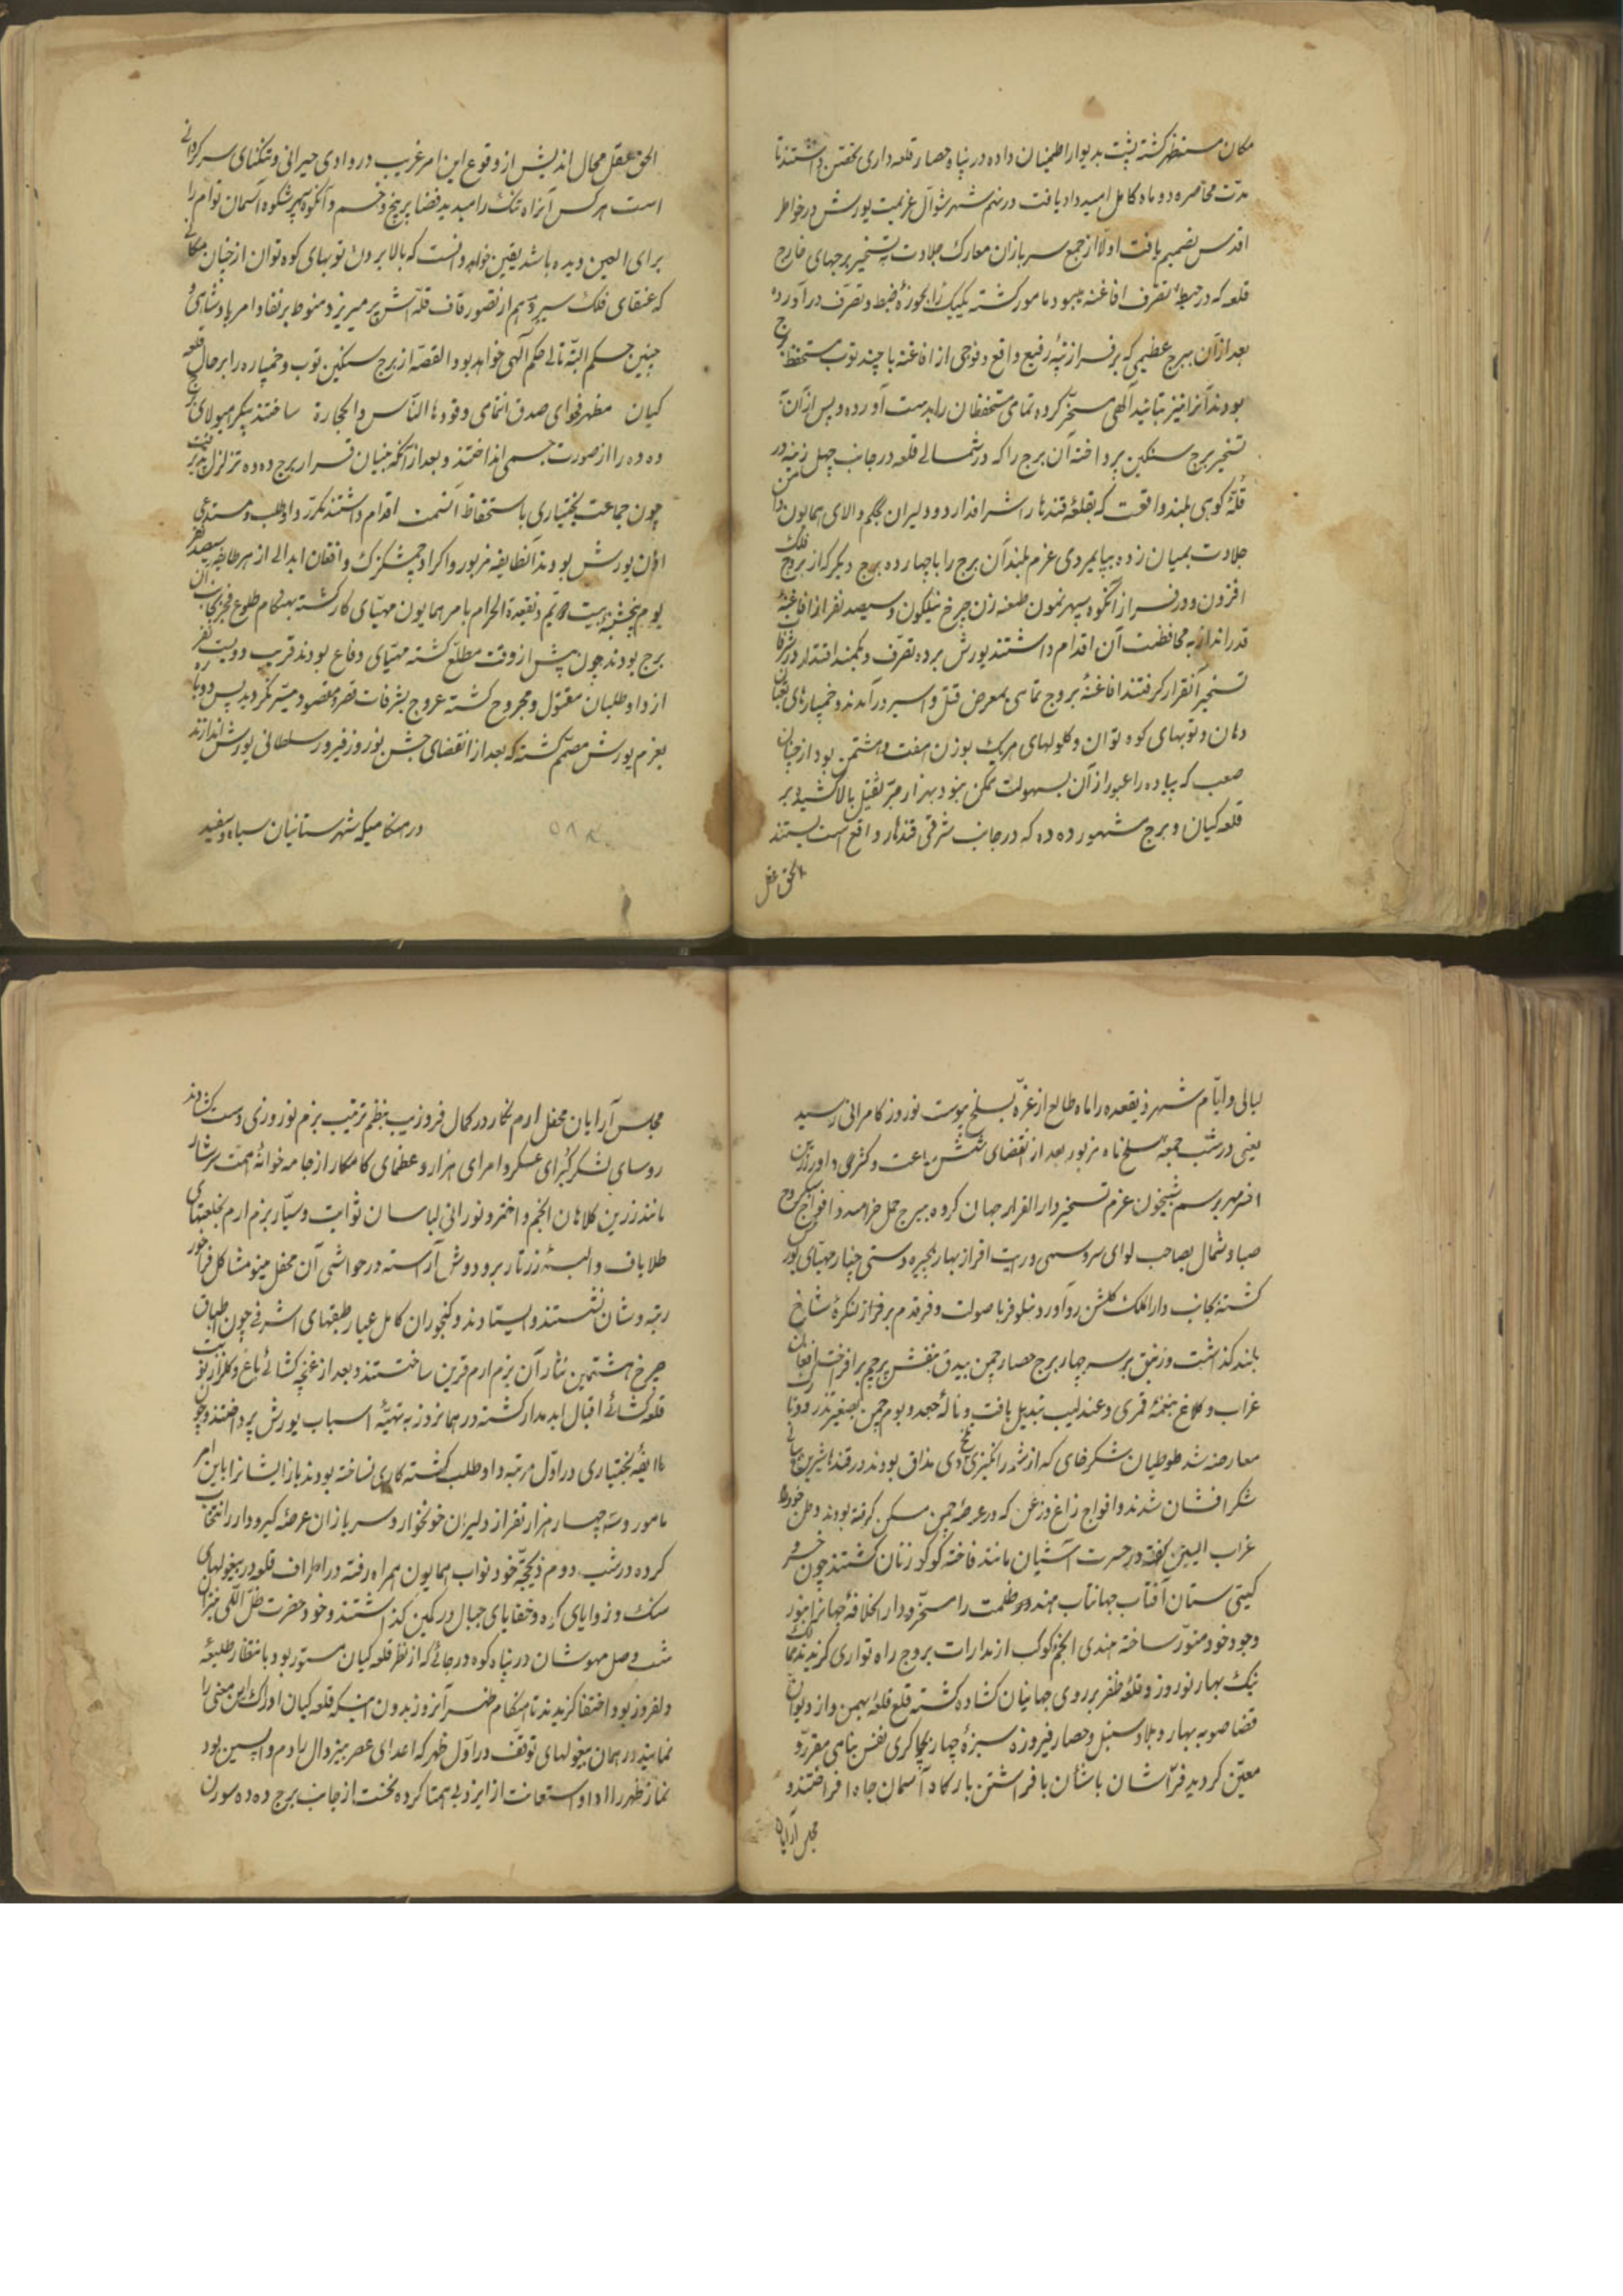 مکان مستظهر گشته پشت بدیوار اطمینان داده در پناه حصار قلعه داری تحصن داشتند تا
مدت محاصره دو ماه کامل امتداد یافت در نهم شهر شوال عزیمت یورش در خاطر
اقدس تصمیم یافت اولا از جمع سربازان معارک جلادت بتسخیر برجهای خارج
قلعه که در حیطه تصرف افاغنه میبود مامور گشته یکیک را بحوزه ضبط و تصرف در آورده
بعد از آن ببرج عظیمی که بر فراز تپه رفیع واقع و فوجی از افاغنه با چند توب مستحفظ برج
بودند آنرا نیز بتائید الهی مسخر کرده تمامی مستحفظان را بدست آورده و پس از آن به
تسخیر برج سنگین پرداخته آن برج را که در شمالی قلعه در جانب چهل زینه در
قله کوهی بلند واقعست که بقلعه قندهار اشراف دارد و دلیران بحکم والای همایون دامن
جلادت بمیان زده بپایمردی عزم بلند آن برج را با چهارده برج دیگر که از بروج فلک
افزون و در فراز آنکوه سپهر نمون طعنه زن چرخ نیلگون و سیصد نفر از افاغنه
قدرانداز به محافظت آن اقدام داشتند یورش برده تصرف و بکمند اقتدار در شرفات
تسخیر آن قرار گرفتند افاغنه بروج تمامی بمعرض قتل و اسیر در آمدند و خمپارهای ثعبان
دهان و توبهای کوه توان و گلولهای هریک بوزن هفت و هشتمن بود از چنان
صعب که پیاده را عبور از آن بسهولت ممکن نبود بهزار جر ثقیل بالا کشیده بر
قلعه کیان و برج مشهور ده ده که در جانب شرقی قندهار واقع است بستند
الحق عقل
الحق عقل محال اندیش از وقوع این امر غریب در وادی حیرانی و تنکنای سرگردانی
است هر کس آنراه تنک را مدید بد فضا پر پیچ و خم و آنکوه سپهر شکوه آسمان توام را
برای العین دیده باشد یقین خواهد دانست که بالا بردن توبهای کوه توان از چنان مکانی
که عنقای فلک سیر وهم از تصور قاف قله اش پر میریزد منوط بر نفاذ امر پادشاهی و
چنین حکم البته تالی حکم الهی خواهد بود القصه از برج سنگین توب و خمپاره را بر حال قلعه
کیان مظهر فحوای صدق انتمای وقودها الناس والحجارة ساختند پیکر هیولای برج
ده ده را از صورت جسمی انداختند و بعد از آنکه بنیان قرار برج ده ده تزلزل پذیر گشت
چون جماعت بختیاری باستحفاظ آنسمت اقدام داشتند مکرر داوطلب و مستدعی
اذن یورش بودند آنطایفه مزبور و اکراد چمشگزک و افغان ابدالی از هر طایفه سیصد نفر
یوم پنجشنبه بیست و یتم ذیقعدة الحرام بامر همایون مهیای کار گشته بهنگام طلوع فجر بجانب آن
برج بودند چون پیش از وقت مطلع گشته مهیای دفاع بودند قریب دویست نفر
از داوطلبان مقتول و مجروح گشته عروج بشرفات قصر مقصود میسر نگردید پس دوباره
بعزم یورش مصمم گشته که بعد از انقضای جشن نوروز فیروز سلطانی یورش اندازند
در هنگامیکه شهرستانیان سیاه و سفید
لیالی و ایام شهر ذیقعده را ماه طالع از غره بسلخ پیوست نوروز کامرانی رسید
یعنی در شب جمعه سلخ ماه مزبور بعد از انقضای شش ساعت و کسری داور زرین
افسر مهر برسم شبیخون عزم تسخیر دار القرار جهان کرده ببرج حمل خرامید و افواج سبکروح
صبا و شمال بصاحب لوای سرو سهی و رایت افراز بهار بچیره دستی چنار مهیای یورش
گشته بجانب دار الملک گلشن رو آورد و نیلوفر با صولت و فر قدم بر فراز کنگره شاخ
بلند گذاشت و زنبق بر سر چهار برج حصار چمن بیدق بنفش پرچم بر افراخت افغان
غراب و کلاغ بنغمه قمری و عندلیب تبدیل یافت و ناله جغد و بوم چمن بصفیر تذرو
معارضه شد طوطیان شکرخای که از شور انگیزی دی تلخ مذاق بودند در قند شیرین
شکر افشان شدند و افواج زاغ و زغن که در عرصه چمن مسکن گرفته بودند وطن خود را
غراب البین گفته در حسرت آشیان مانند فاخته کوکو زنان گشتند چون خسرو
گیتی ستان آفتاب جهانتاب هندو ظلمت را مسخر و دار الخلافه جهانرا بنور
وجود خود منور ساخته هندی انجم کوکب از مدارات بروج راه تواری گزیدند
نیک بهار نوروز و قلعه ظفر بر روی جهانیان گشاده گشته قلع قلعه بهمن و از دیوان
قضا صوبه بهار و بلاد سنبل و حصار فیروزه سبزه چهار بچاکری نفس نامی مقرر و
معین گردید فراشان باشان بافراشتن بارگاه آسمان جاه افراختند و
مجلس آرایان
مجلس آرایان محفل ارم نگار در کمال فر و زیب بنظم ترتیب بزم نوروزی دست گشادند
روسای لشکر کبرای عسکر و امرای هزار و عظمای کامکار از جامه خوانه همت سرشار
مانند زرین کلاهان انجم و اختر و نورانی لباسان ثوابت و سیار بزم ارم بخلعتهای
طلاباف و البسه زرتار بر و دوش آراسته در حواشی آن محفل مینو مشاکل فراخور
رتبه و شان نشستند و ایستادند و گنجوران کامل عیار طبقهای اشرفی چون اطباق
چرخ هشتمین نثار آن بزم ارم قرین ساختند و بعد از غنچه گشائی باغ و گلزار نوبت
قلعه گشائی اقبال ابد مدار گشته در همانروز به تهیه اسباب یورش پرداختند و چون
طایفه بختیاری در اول مرتبه داوطلب گشته کاری نساخته بودند باز ایشانرا باین امر
مامور و سه چهار هزار نفر از دلیران خونخوار و سربازان عرصه گیر و دار را انتخاب
کرده در شب دوم ذیحجه خود نواب همایون همراه رفته در اطراف قلعه در بیغولهای
سنک و زوایای دره و خفایای جبال در کمین گذاشتند و خود حضرت ظل اللهی نیز آن
شب وصل مهوشان در پناه کوه در جائی که از نظر قلعه کیان مستور بود بانتظار طلیعه
ولفروز بود اختفا گزیدند تا هنگام ظهر آنروز بدون اینکه قلعه کیان ادراک این معنی را
نمایند در همان بیغولهای توقف و در اول ظهر که اعدای عصر بیزوال را دم واپسین بود
نماز ظهر را ادا و استعانت از ایزد بی همتا کرده نخست از جانب برج ده ده سورن